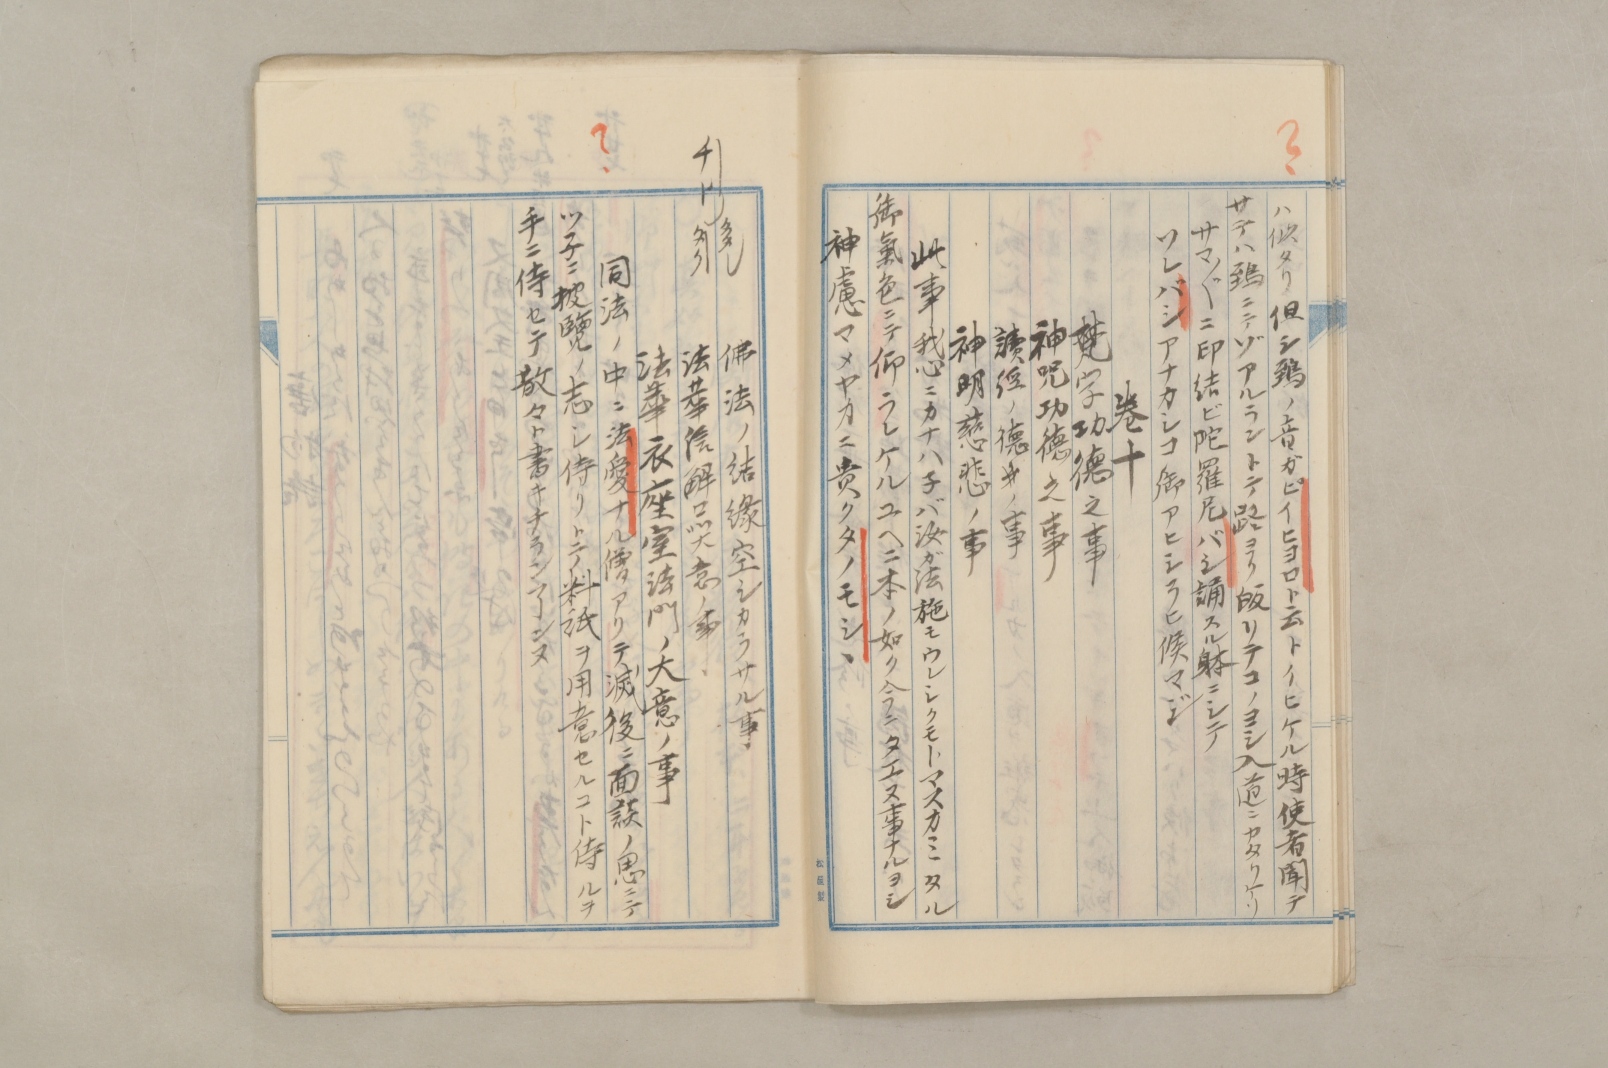 ハ似タリ但シ鵄ノ音ガピイヒヨロト云トイヒケル時使者聞テ
サテハ鵄ニテゾアルラントテ路ヨリ皈リテコノヨシ入道ニカタリケリ
サマ〲ニ印結ビ陀羅尼バシ誦スル躰ニシテ
ソレバシアナカシコ御アヒシラヒ候マジ
巻十
梵字功德之事
神呪功德之事
讀経ノ德等ノ事
神明慈悲ノ事
此事我心ニカナハ子バ汝ガ法施モウレシクモトマスカミタル
御氣色ニテ仰ラレケルユヘニ本ノ如ク今ニタエヌ事ナルヨシ
神慮マメヤカニ貴クタノモシ、
佛法ノ結縁空シカラサル事、
法華信解品大意ノ事、
法華衣座室法門ノ大意ノ事
同法ノ中ニ法愛ナル僧アリテ滅後ニ面談ノ思ニテ
ツ子ニ披覽ノ志シ侍リトテ料紙ヲ用意セルコト侍ルヲ
手ニ侍セテ散々ト書キチラシ
松屋製